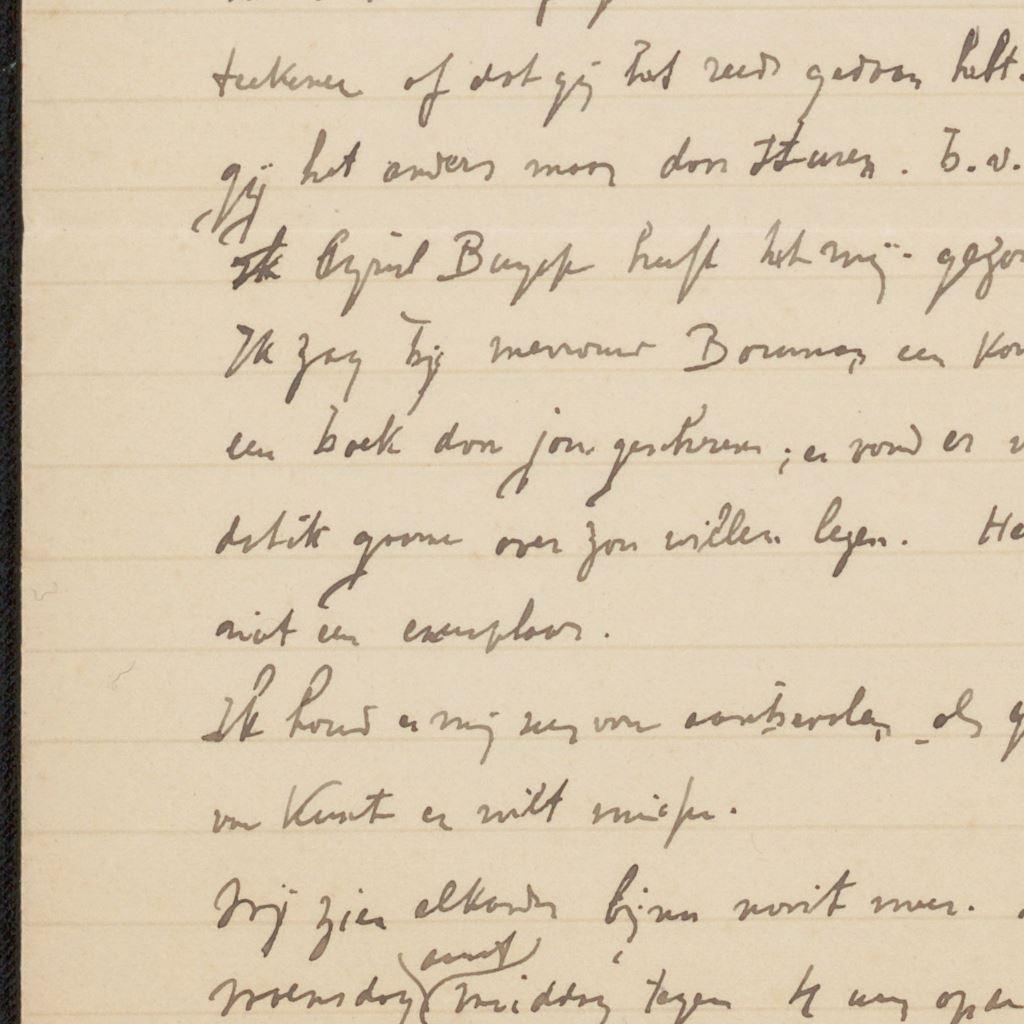 teekenen of dat gij het reeds gedaan hebt.
gij het anders maar door sturen. b.v.
Ik Cyriel Buysse heeft het mij gezon
Ik zag bij mevrouw Bouman een
een boek door jou geschreven; en vond er
dat ik gaarne over zou willen lezen. He
niet een exemplaar.
Ik houd er mij zeer voor aanbevolen, als g
van Kunt en wilt
Wij zien elkander bijna nooit meer.
avond
woensdag middag tegen 4 uur open